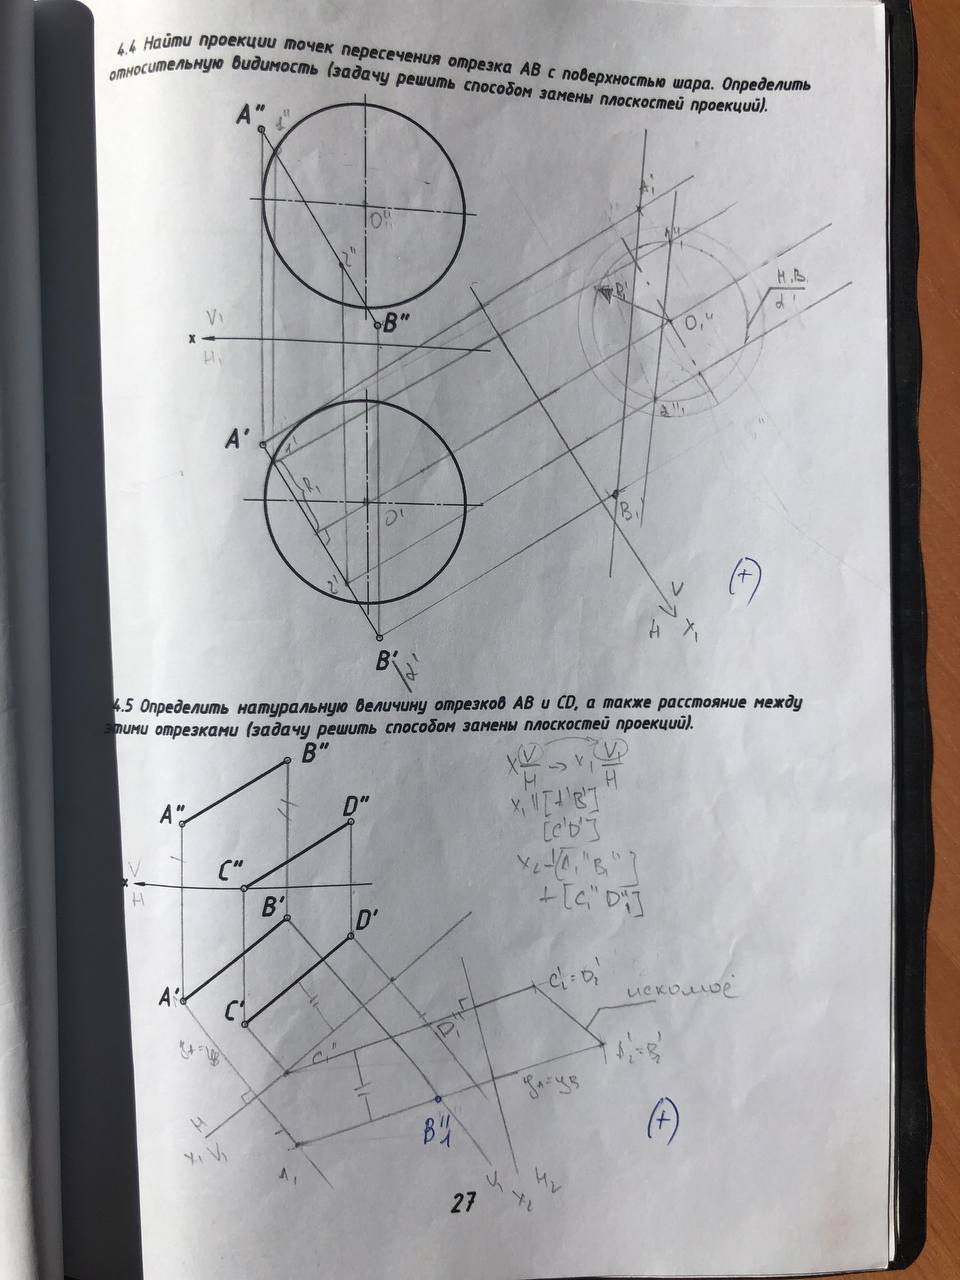 4.4 Найти проекции точек пересечения отрезка АВ с поверхностью шара. Определить
относительную видимость (задачу решить способом замены плоскостей проекций).
A"
1"
O"
2"
B"
V₁
x
H₁
A'
1'
R₁
O'
2'
B'
α'
1₁"
R₁'
O₁"
2₁"
Н.В.
α'
B₁'
V
H X₁
(+)
4.5 Определить натуральную величину отрезков АВ и CD, а также расстояние между
этими отрезками (задачу решить способом замены плоскостей проекций).
B"
A"
D"
C"
V
x
H
B'
D'
A'
C'
x V/H → x₁ V₁/H
x₁ || [A'B']
[C'D']
x₂ ⊥ [A₁"B₁"]
⊥ [C₁"D₁"]
C₂'=D₂'
искомое
A₂'=B₂'
D₁"
C₁"
yA=yB
yA=yB
B₁"
H
x₁ V₁
A₁
V₁ X₂ H₂
(+)
27